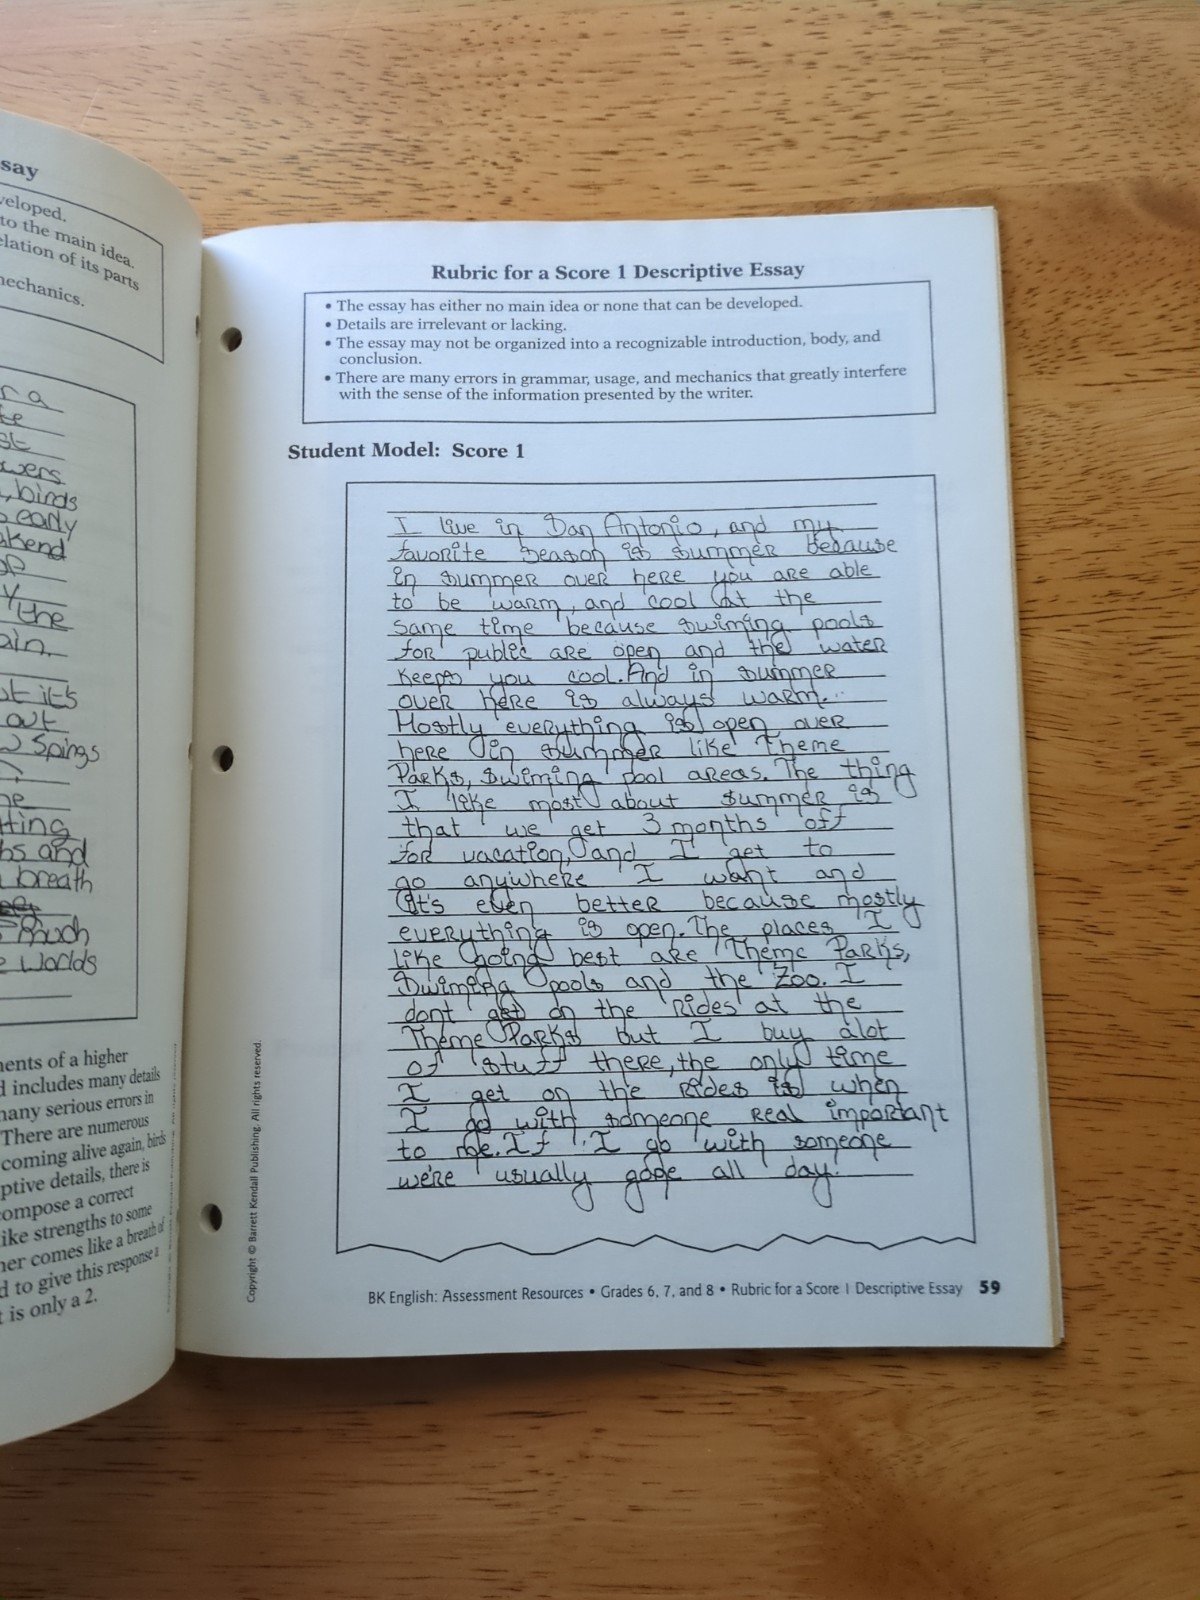 say
veloped.
to the main idea.
elation of its parts
mechanics.
r a
te
st
owers
, birds
early
akend
y
the
ain.
ut it's
out
w Spings
ne
tting
bs and
breath
much
e Worlds
ments of a higher
d includes many details
many serious errors in
There are numerous
coming alive again, birds
ptive details, there is
ompose a correct
like strengths to some
ner comes like a breath of
d to give this response a
t is only a 2.
Rubric for a Score 1 Descriptive Essay
• The essay has either no main idea or none that can be developed.
• Details are irrelevant or lacking.
• The essay may not be organized into a recognizable introduction, body, and
conclusion.
• There are many errors in grammar, usage, and mechanics that greatly interfere
with the sense of the information presented by the writer.
Student Model: Score 1
I live in San Antonio, and my
favorite season is summer because
in summer over here you are able
to be warm, and cool at the
same time because swiming pools
for public are open and the water
keeps you cool. And in summer
over here is always warm.
Mostly everything is open over
here in summer like Theme
Parks, swiming pool areas. The thing
I like most about summer is
that we get 3 months off
for vacation, and I get to
go anywhere I want and
it's even better because mostly
everything is open. The places I
like going best are Theme Parks,
Swiming pools and the Zoo. I
dont get on the rides at the
Theme Parks but I buy alot
of stuff there, the only time
I get on the rides is when
I go with someone real important
to me. If I go with someone
we're usually gone all day.
Copyright © Barrett Kendall Publishing. All rights reserved.
BK English: Assessment Resources • Grades 6, 7, and 8 • Rubric for a Score 1 Descriptive Essay 59